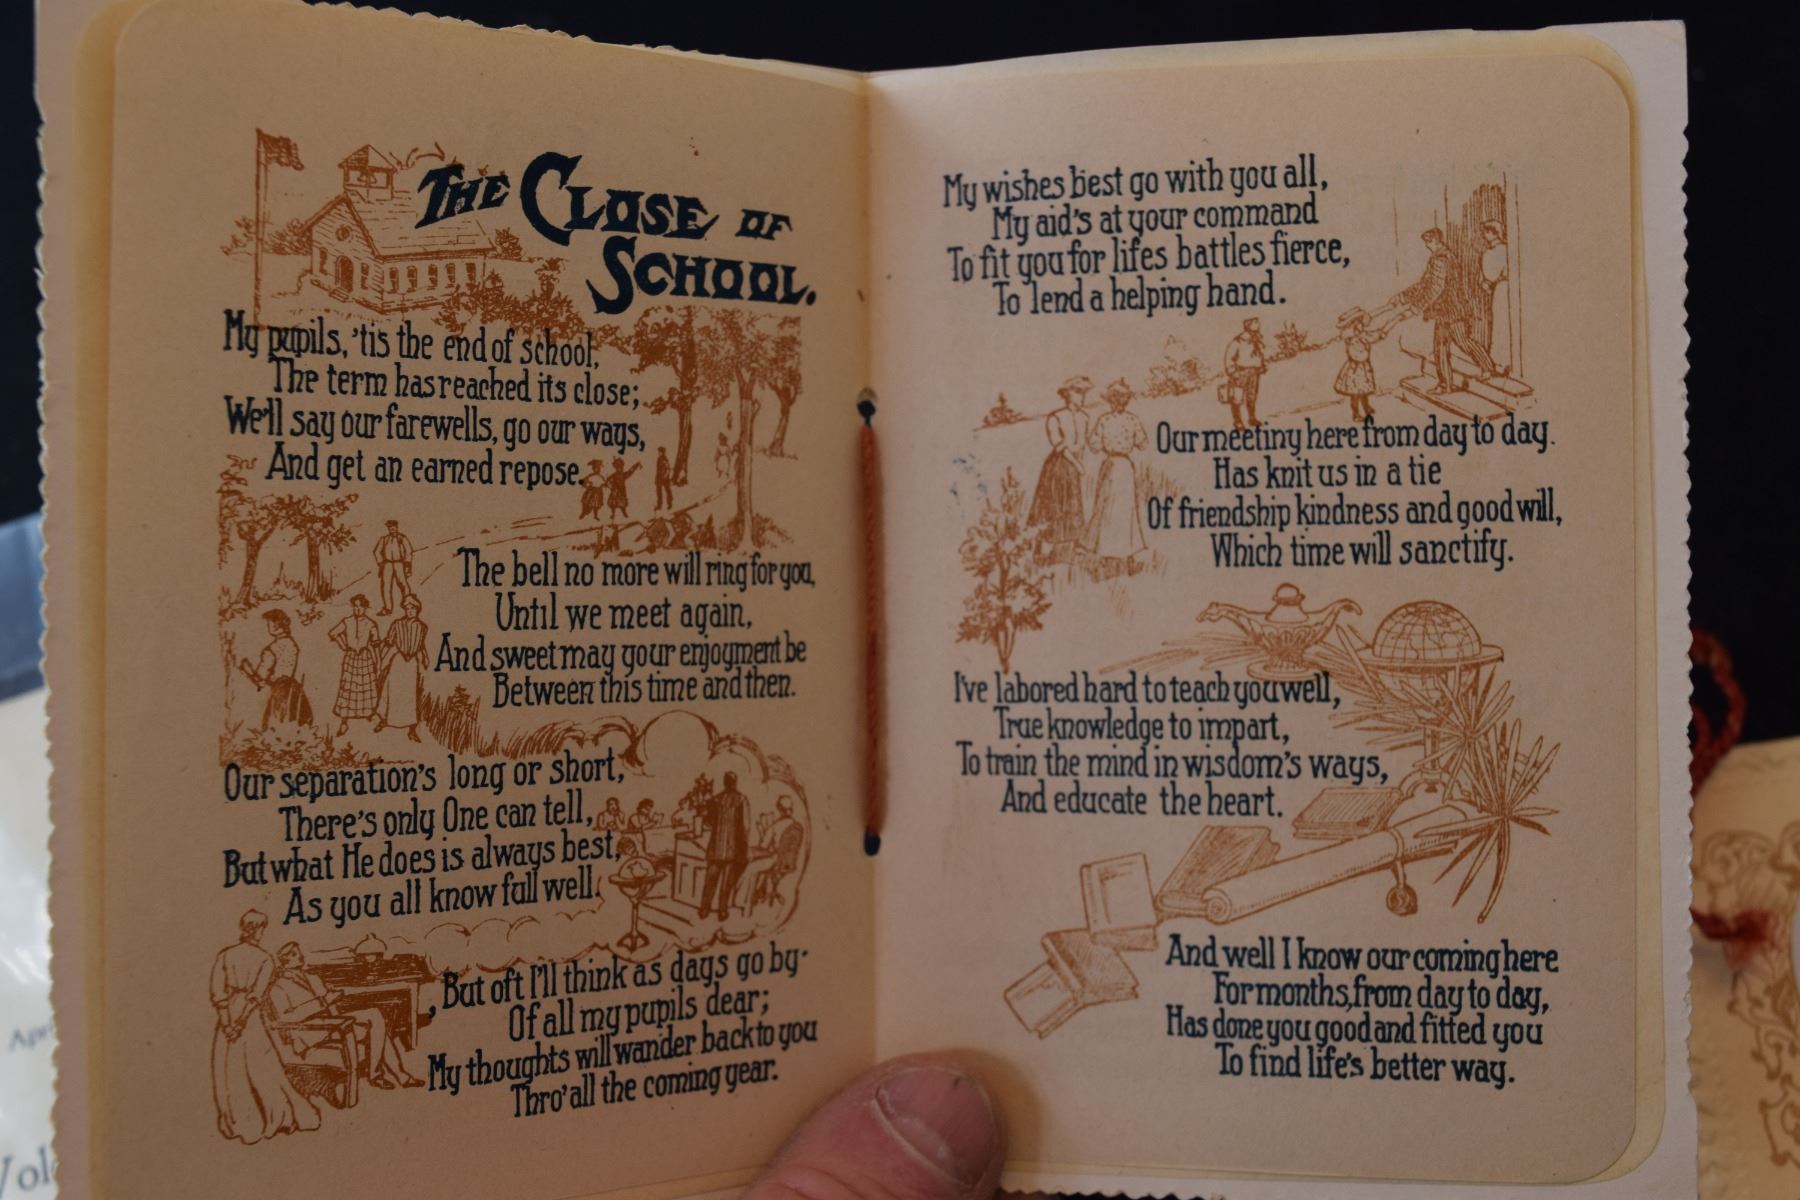 THE CLOSE OF
SCHOOL.
My pupils, 'tis the end of school,
The term has reached its close;
We'll say our farewells, go our ways,
And get an earned repose.
The bell no more will ring for you,
Until we meet again,
And sweet may your enjoyment be
Between this time and then.
Our separation's long or short,
There's only One can tell,
But what He does is always best,
As you all know full well.
But oft I'll think as days go by
Of all my pupils dear;
My thoughts will wander back to you
Thro' all the coming year.
My wishes best go with you all,
My aid's at your command
To fit you for lifes battles fierce,
To lend a helping hand.
Our meeting here from day to day.
Has knit us in a tie
Of friendship kindness and good will,
Which time will sanctify.
I've labored hard to teach you well,
True knowledge to impart,
To train the mind in wisdom's ways,
And educate the heart.
And well I know our coming here
For months, from day to day,
Has done you good and fitted you
To find life's better way.